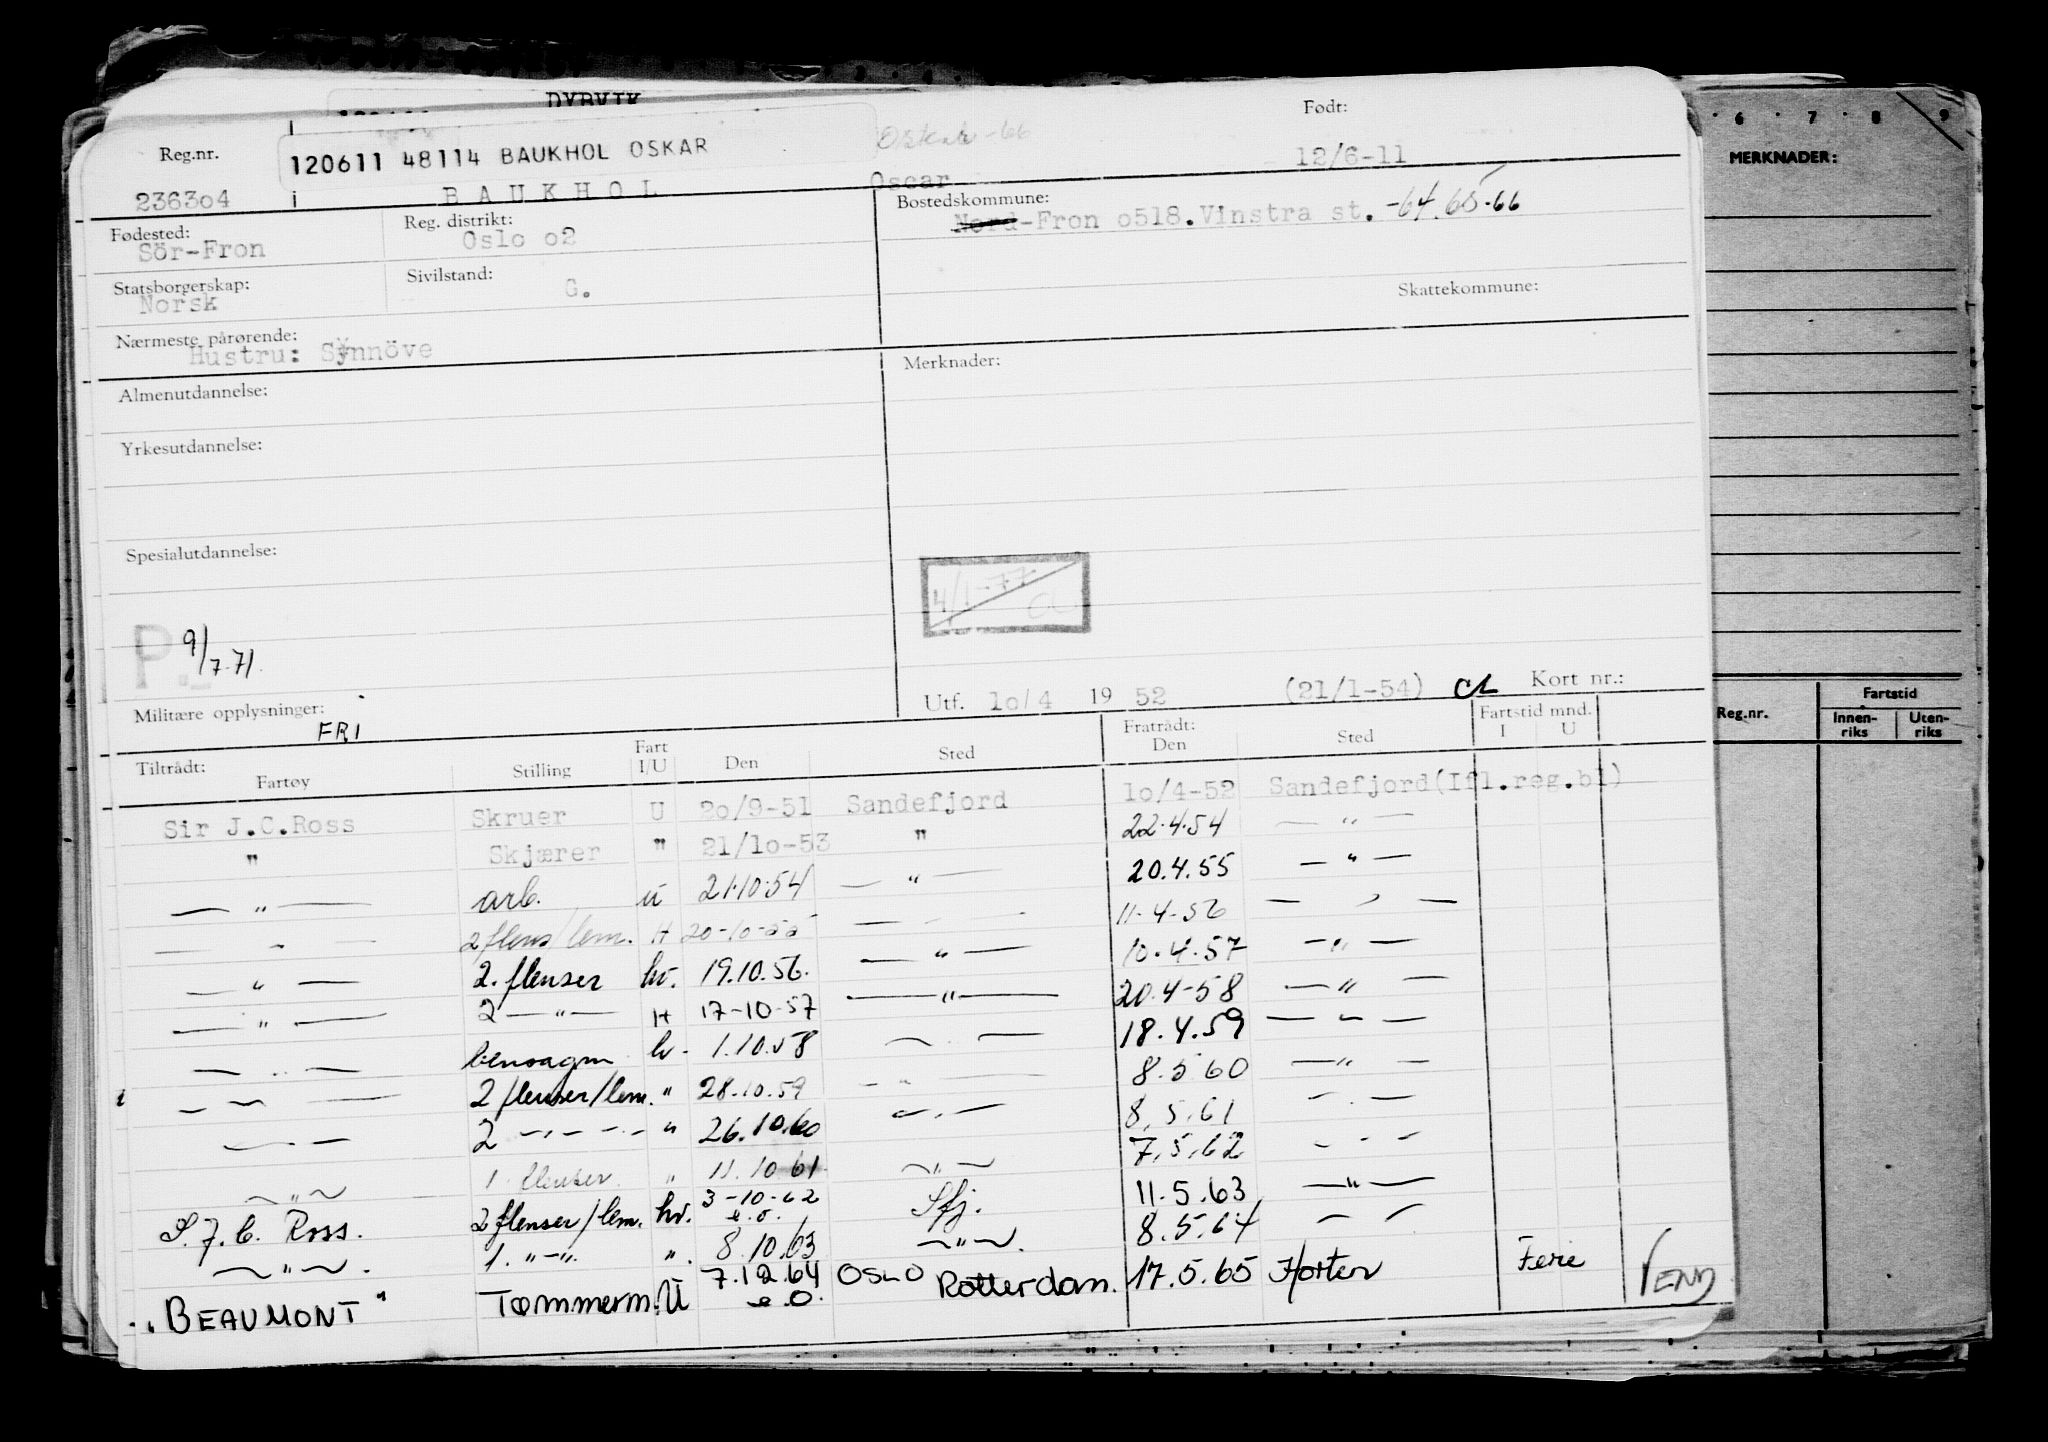 DYRVIK
6 7 8 9
Reg.nr. 120611 48114 BAUKHOL OSKAR Oskar -66 Født:
12/6-11
MERKNADER:
236304 BAUKHOL Oscar
Fødested: Reg. distrikt: Bostedskommune:
Sör-Fron Oslo o2 Nord-Fron o518.Vinstra st. -64.65-66
Statsborgerskap: Sivilstand: Skattekommune:
Norsk G.
Nærmeste pårørende:
Hustru: Synnöve
Almenutdannelse: Merknader:
Yrkesutdannelse:
Spesialutdannelse:
4/1-77
P. 9/7.71.
Utf. 1o/4 1952 (21/1-54) Kort nr.:
Militære opplysninger:
FRI
Tiltrådt: Fartøy Stilling Fart I/U Den Sted Fratrådt: Den Sted Fartstid mnd. I U
Reg.nr. Fartstid
Innen-riks Uten-riks
Sir J.C.Ross Skruer U 2o/9-51 Sandefjord 1o/4-52 Sandefjord(Ifl.reg.bl)
" Skjærer " 21/1o-53 " 22.4.54 — " —
— " — arb. u 21.10.54 — " — 20.4.55 — " —
— " — 2 flens/lem. H 20-10-55 — " — 11-4-56 — " —
— " — 2. flenser hv. 19.10.56. — " — 10.4.57 — " —
— " — 2 — " — H 17-10-57 — " — 20.4-58 — " —
— " — bensagm hv. 1.10.58 — " — 18.4.59 — " —
— " — 2 flenser/lem. " 28.10.59 — " — 8.5.60 — " —
— " — 2 — " — " 26.10.60 — " — 8.5.61 — " —
— " — 1 flenser. " 11.10.61 — " — 7.5.62 — " —
S. J. C. Ross. 2 flenser/lem. hv. 3-10-62 e.o. Sfj. 11.5.63 — " —
— " — 1. " — " ". 8.10.63 — " — 8.5.64 — " —
"BEAUMONT" Tømmerm. U 7.12.64 e.o. OSLO Rotterdam. 17.5.65 Horten Ferie VEND